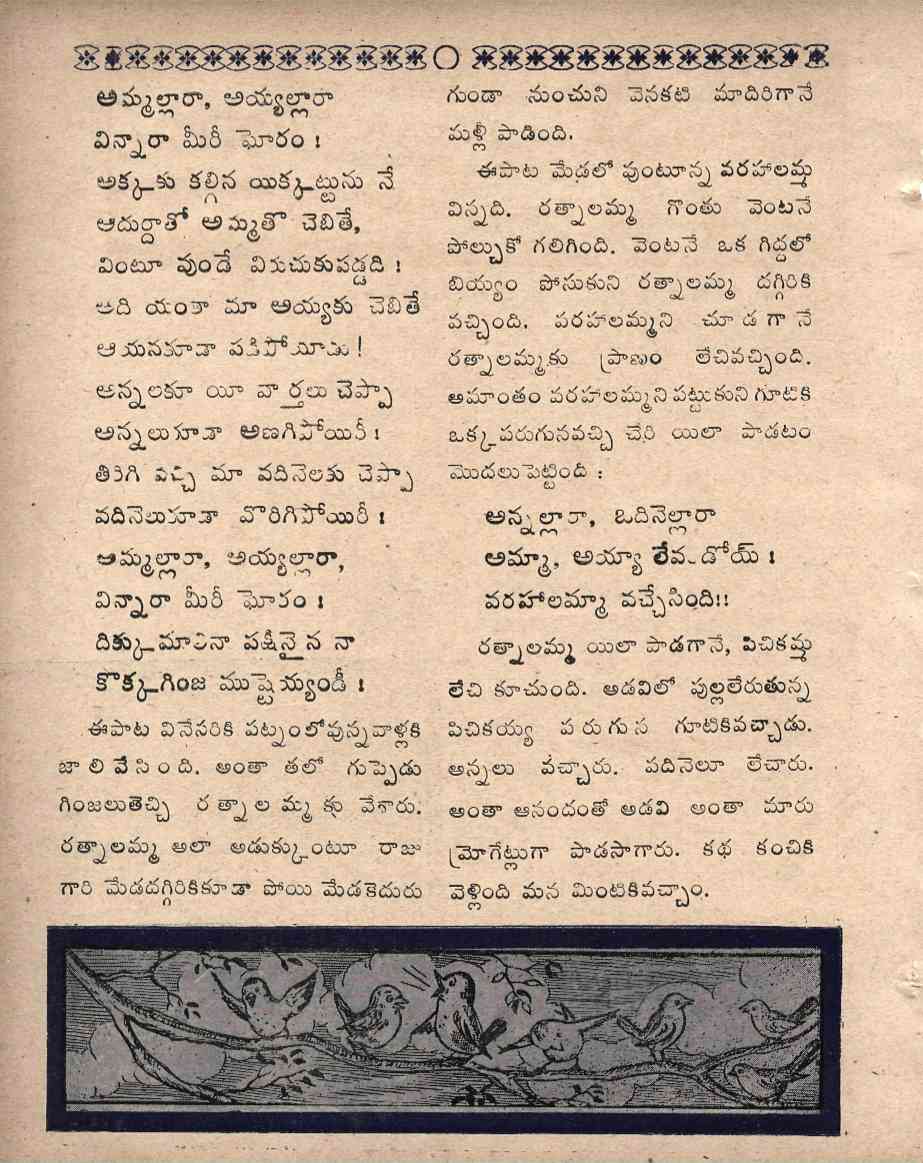 అమ్మల్లారా, అయ్యల్లారా
విన్నారా మీరీ ఘోరం !
అక్కకు కల్గిన యిక్కట్టును నే
ఆదుర్దాతో అమ్మతొ చెబితే,
వింటూ వుండే విరుచుకుపడ్డది !
అది యంకా మా అయ్యకు చెబితే
ఆయనకూడా పడిపోయాడు!
అన్నలకూ యీ వార్తలు చెప్పా
అన్నలుకూడా అణగిపోయిరీ !
తిరిగి వచ్చి మా వదినెలకు చెప్పా
వదినెలుకూడా వొరిగిపోయిరీ !
అమ్మల్లారా, అయ్యల్లారా,
విన్నారా మీరీ ఘోరం !
దిక్కుమాలినా పక్షినైన నా
కొక్కగింజ ముష్టెయ్యండీ !
ఈపాట వినేసరికి పట్నంలోవున్నవాళ్లకి
జాలివేసింది. అంతా తలో గుప్పెడు
గింజలుతెచ్చి రత్నాలమ్మకు వేశారు.
రత్నాలమ్మ అలా అడుక్కుంటూ రాజు
గారి మేడదగ్గిరికికూడా పోయి మేడకెదురు
గుండా నుంచుని వెనకటి మాదిరిగానే
మళ్లీ పాడింది.
ఈపాట మేడలో వుంటూన్న వరహాలమ్మ
విన్నది. రత్నాలమ్మ గొంతు వెంటనే
పోల్చుకో గలిగింది. వెంటనే ఒక గిద్దలో
బియ్యం పోసుకుని రత్నాలమ్మ దగ్గిరికి
వచ్చింది. వరహాలమ్మని చూడగానే
రత్నాలమ్మకు ప్రాణం లేచివచ్చింది.
అమాంతం వరహాలమ్మని పట్టుకుని గూటికి
ఒక్క పరుగునవచ్చి చేరి యిలా పాడటం
మొదలుపెట్టింది :
అన్నల్లారా, ఒదినెల్లారా
అమ్మా, అయ్యా లేవండోయ్ !
వరహాలమ్మా వచ్చేసింది!!
రత్నాలమ్మ యిలా పాడగానే, పిచికమ్మ
లేచి కూచుంది. అడవిలో పుల్లలేరుతున్న
పిచికయ్య పరుగున గూటికివచ్చాడు.
అన్నలు వచ్చారు. వదినెలూ లేచారు.
అంతా ఆనందంతో అడవి అంతా మారు
మ్రోగేట్లుగా పాడసాగారు. కథ కంచికి
వెళ్లింది మన మింటికివచ్చాం.